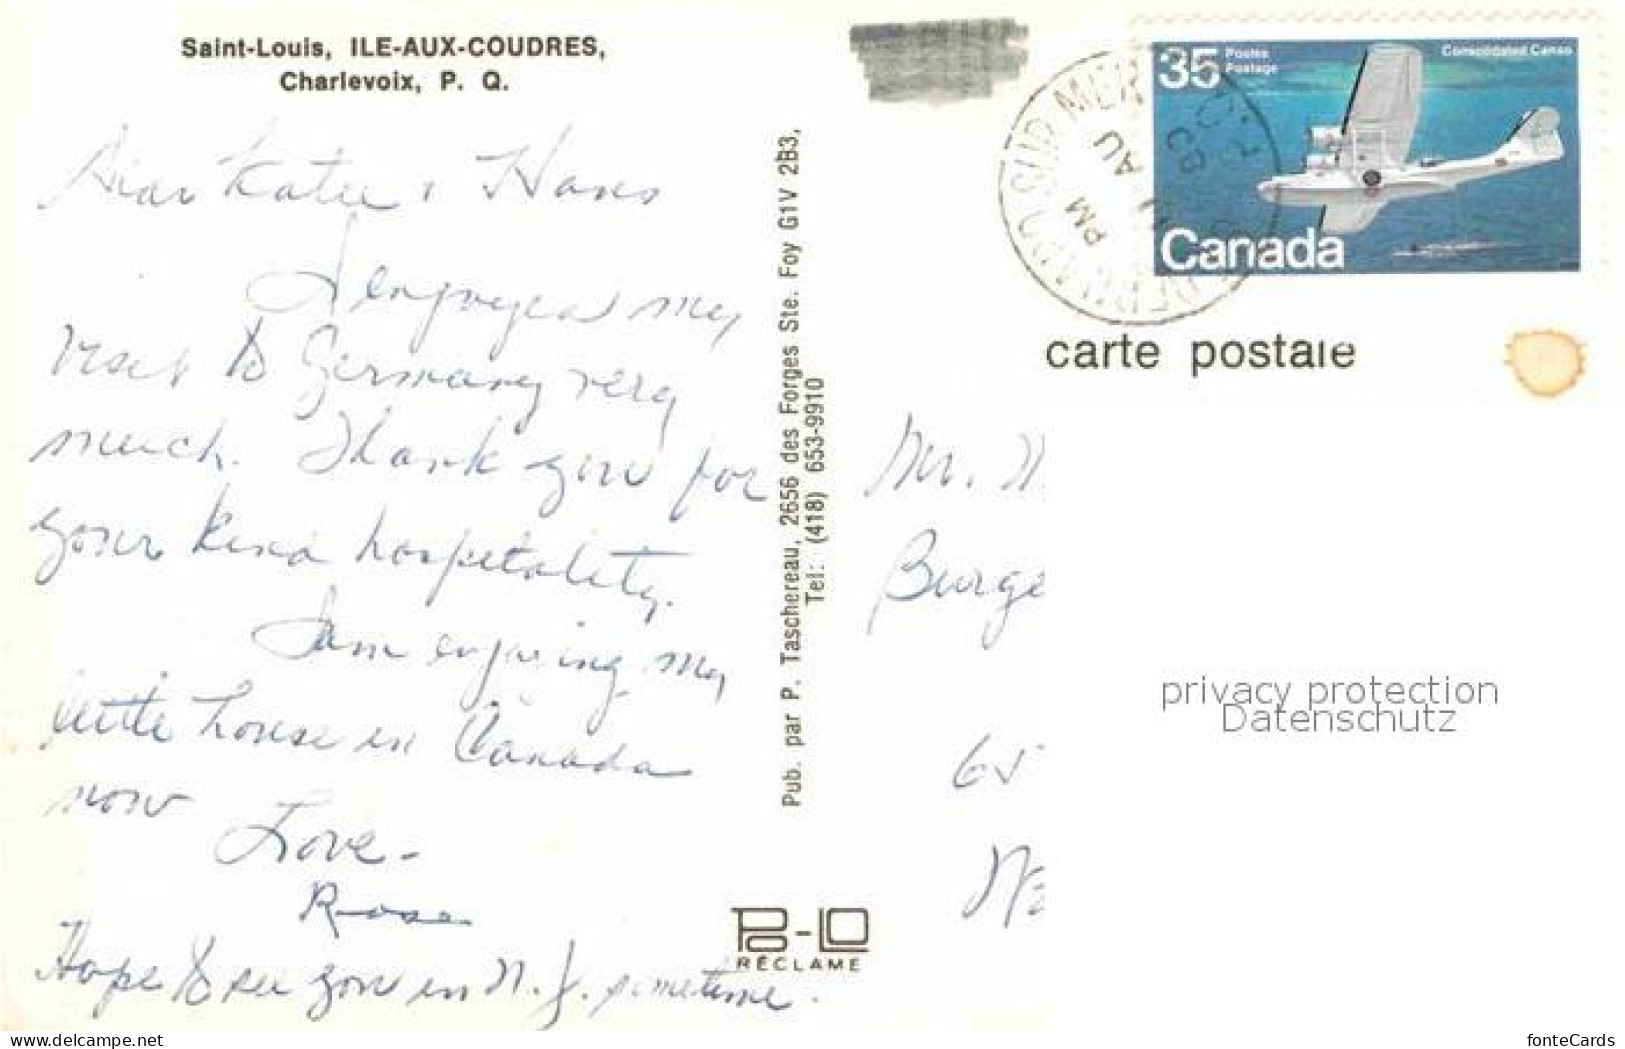 Saint-Louis, ILE-AUX-COUDRES,
Charlevoix, P. Q.
Dear Katie & Hans
I enjoyed my
visit to Germany very
much. Thank you for
your kind hospitality.
I am enjoying my
little house in Canada
now
Love-
Rose
Hope to see you in N. J. sometime.
Pub. par P. Taschereau, 2656 des Forges Ste. Foy G1V 2B3,
Tel: (418) 653-9910
PO-LO
RÉCLAME
35 Postes
Postage
Consolidated Canso
Canada
SUR MER
PM
AU
carte postale
Mr.
Burge
65
privacy protection
Datenschutz
www.delcampe.net
fonteCards